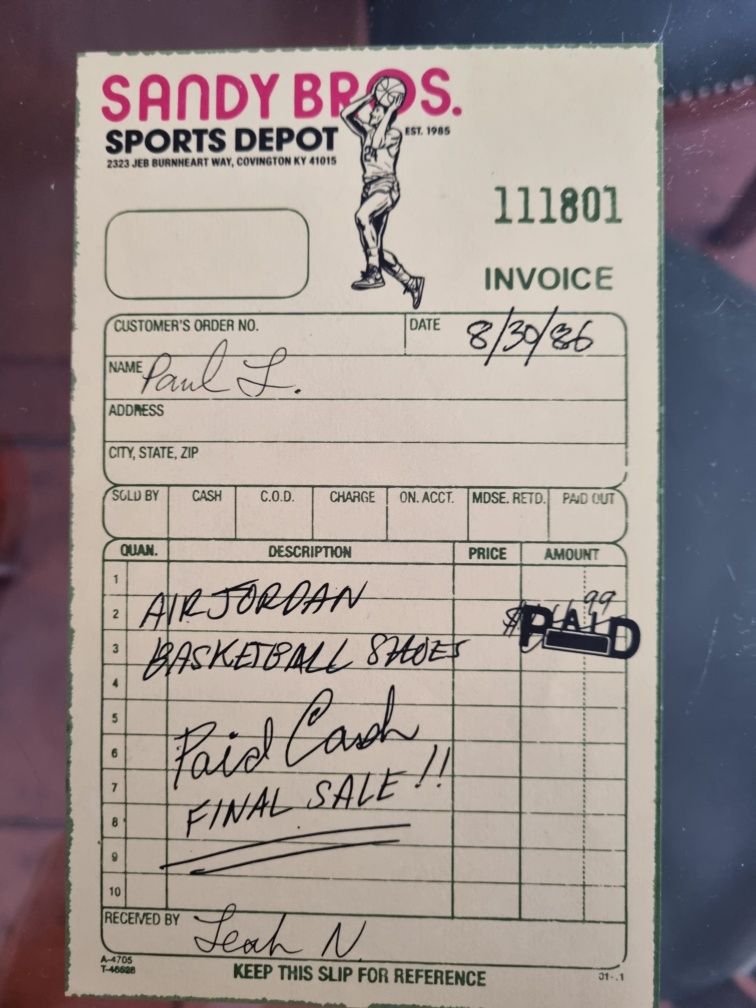 SANDY BROS.
SPORTS DEPOT
EST. 1985
2323 JEB BURNHEART WAY, COVINGTON KY 41015
24
111801
INVOICE
CUSTOMER'S ORDER NO. DATE 8/30/86
NAME Paul L.
ADDRESS
CITY, STATE, ZIP
SOLD BY CASH C.O.D. CHARGE ON. ACCT. MDSE. RETD. PAID OUT
QUAN. DESCRIPTION PRICE AMOUNT
1
2 AIR JORDAN $ 99
PAID
3 BASKETBALL SHOES
4
5
6 Paid Cash
7
8 FINAL SALE!!
9
10
RECEIVED BY Leah N.
A-4705
KEEP THIS SLIP FOR REFERENCE